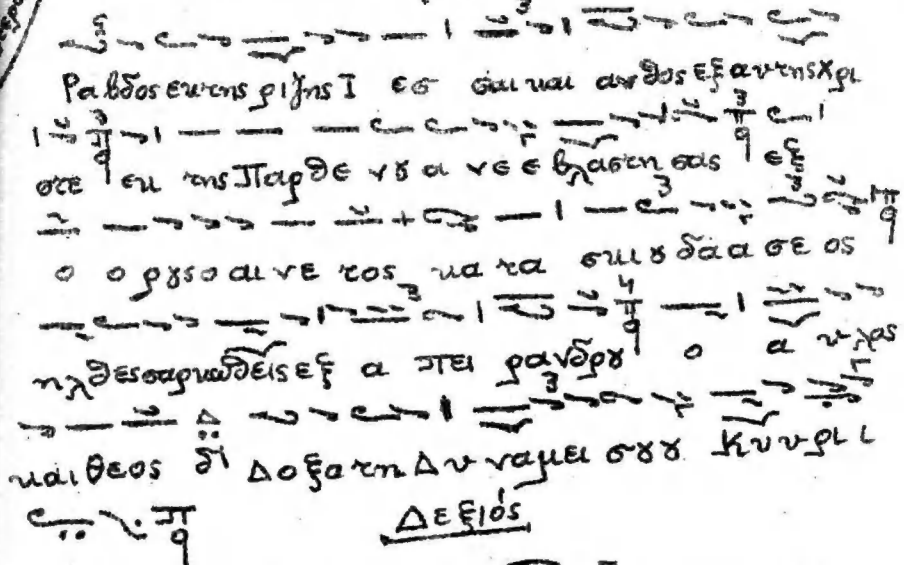 Ραβδος εκ της ριζης Ι εσ σαι και ανθος εξ αυτης Χρι
στε εκ της Παρθε νȣ α νε ε βλαστη σας εξ
ο ο ρȣς ο αι νε τος κα τα σκι ȣ δα α σε ος
ηλθες σαρκωθεις εξ α πει ρανδρȣ ο α υλος
και θεος δι Δοξα τη Δυ ναμει σȣ ȣ Κυ υ ρι ι
Δεξιός